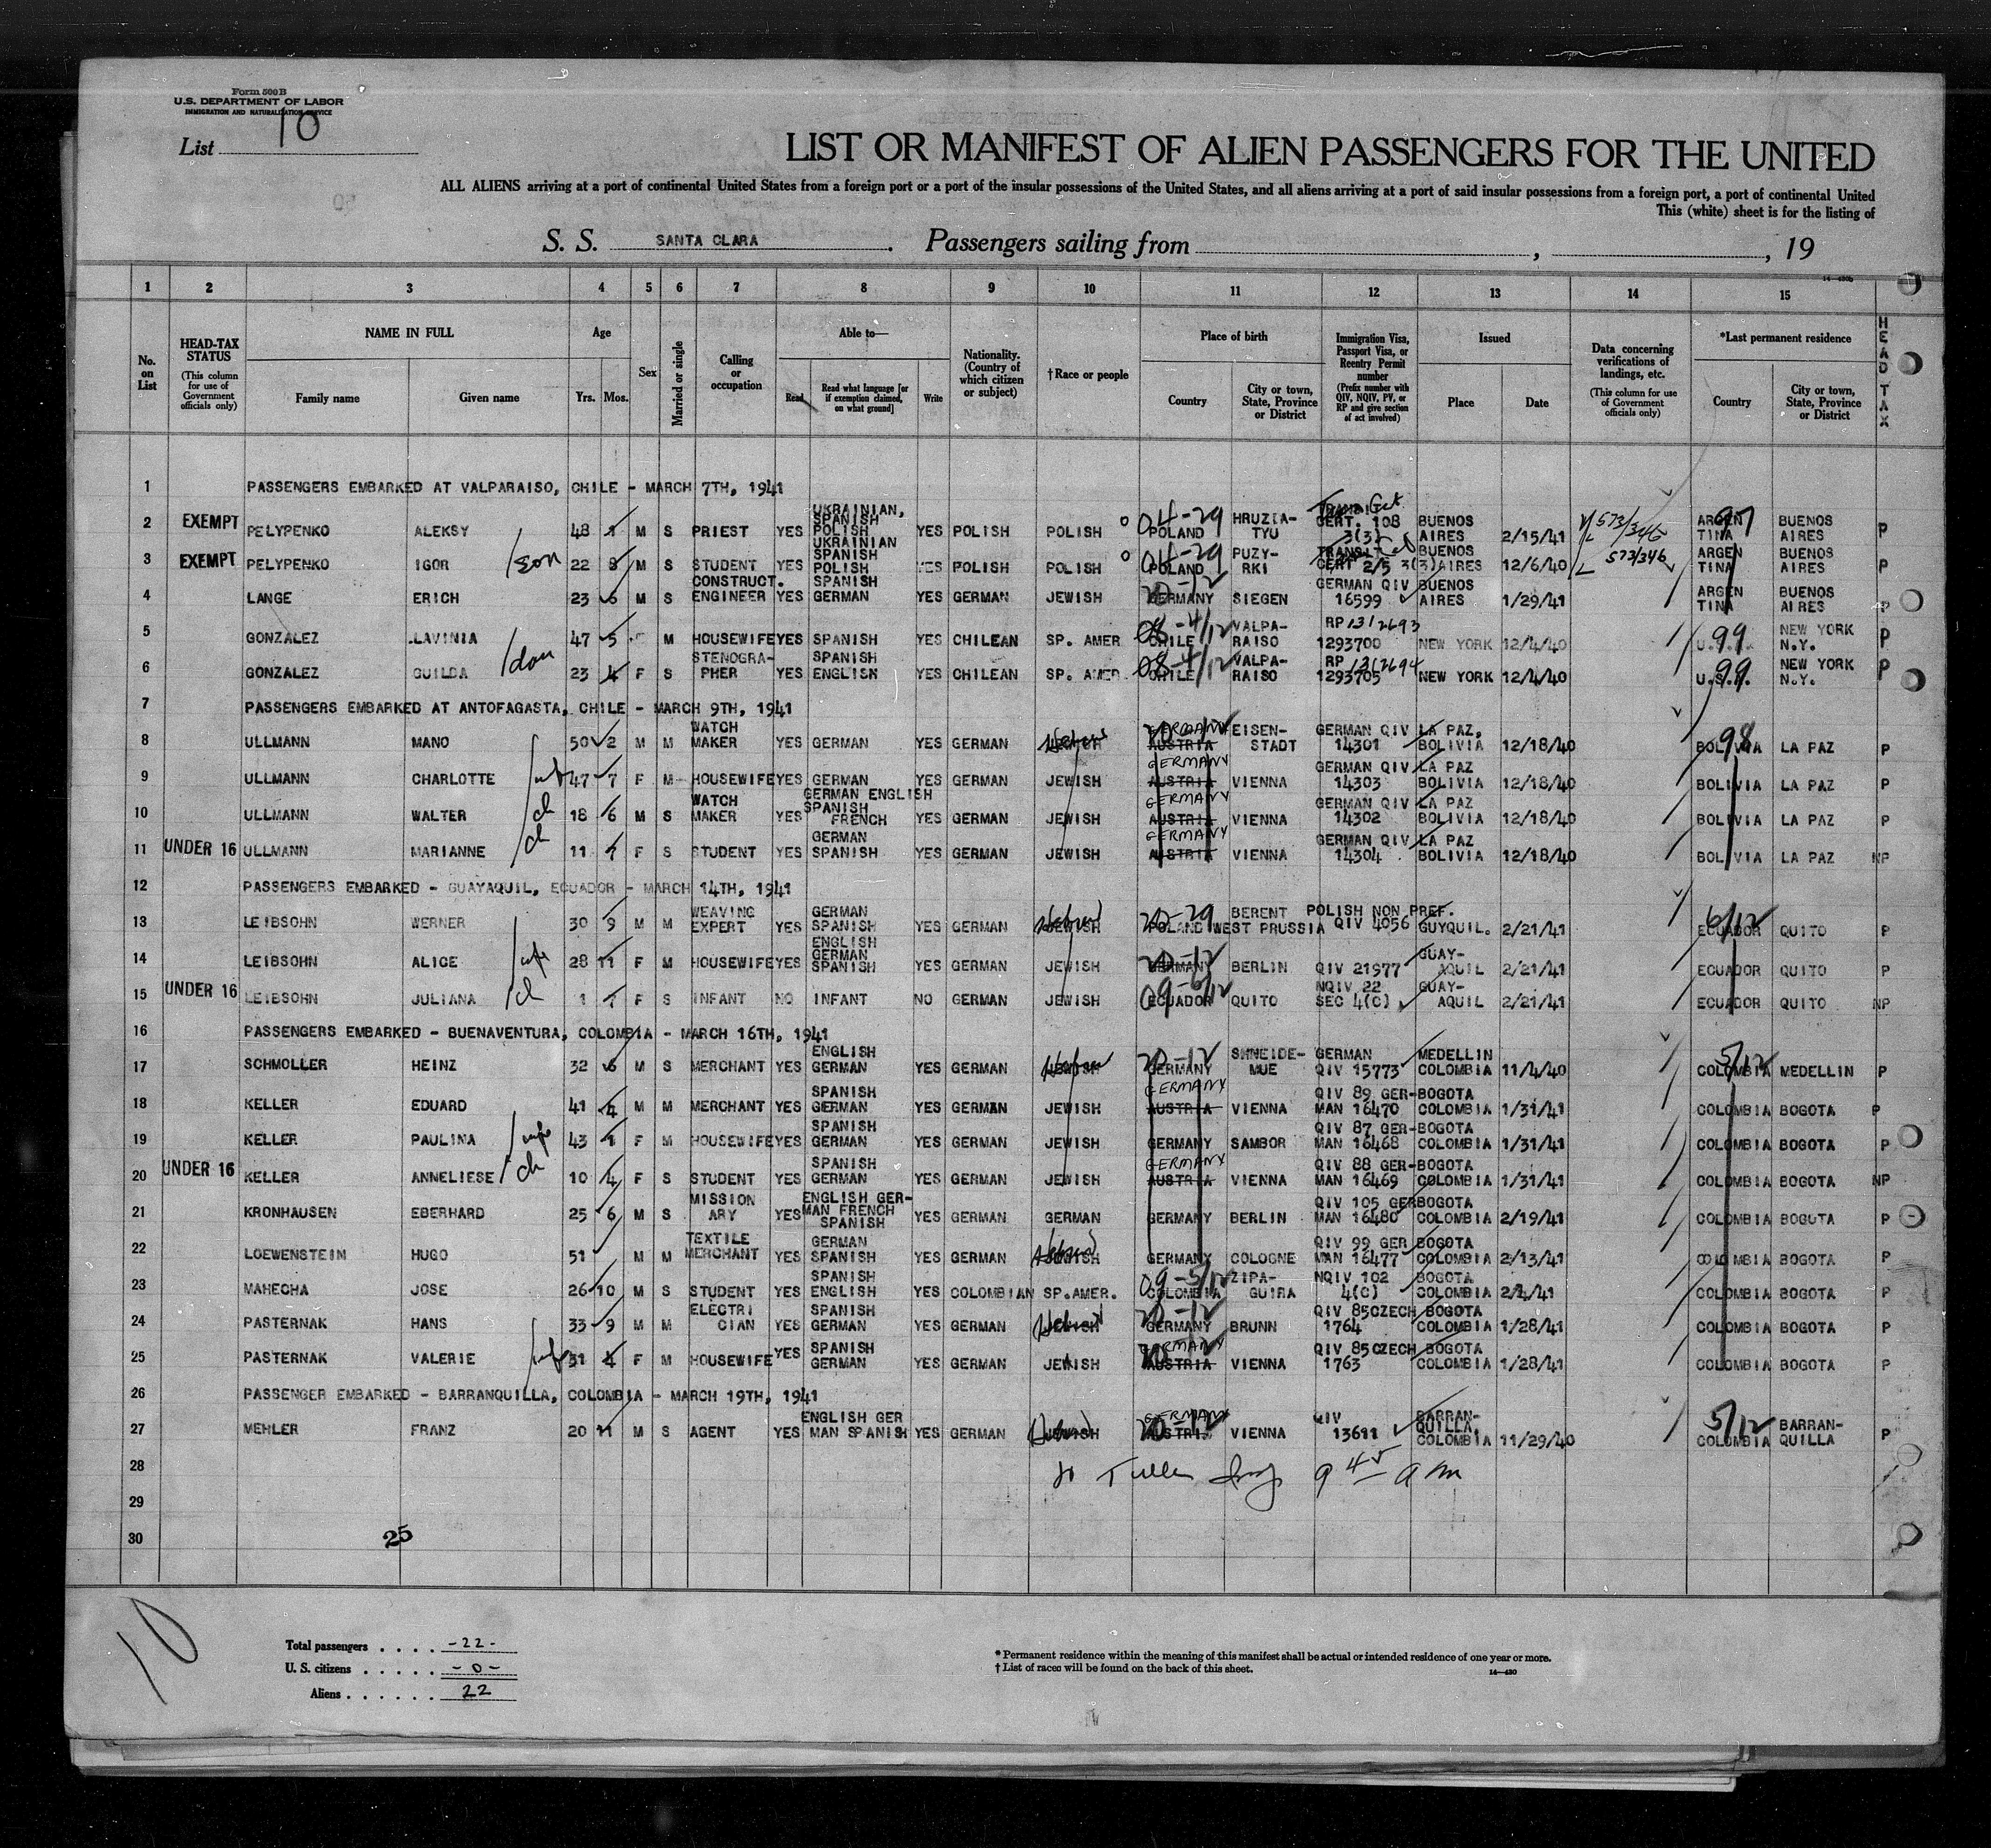 Form 500 B
U.S. DEPARTMENT OF LABOR
IMMIGRATION AND NATURALIZATION SERVICE
List 10
LIST OR MANIFEST OF ALIEN PASSENGERS FOR THE UNITED
ALL ALIENS arriving at a port of continental United States from a foreign port or a port of the insular possessions of the United States, and all aliens arriving at a port of said insular possessions from a foreign port, a port of continental United
This (white) sheet is for the listing of
S. S. SANTA CLARA. Passengers sailing from , , 19
14—430b
1 2 3 4 5 6 7 8 9 10 11 12 13 14 15
No. on List
HEAD-TAX STATUS (This column for use of Government officials only)
NAME IN FULL Family name Given name
Age Yrs. Mos.
Sex
Married or single
Calling or occupation
Able to— Read Read what language [or if exemption claimed, on what ground] Write
Nationality. (Country of which citizen or subject)
†Race or people
Place of birth Country City or town, State, Province or District
Immigration Visa, Passport Visa, or Reentry Permit number (Prefix number with QIV, NQIV, PV, or RP and give section of act involved)
Issued Place Date
Data concerning verifications of landings, etc. (This column for use of Government officials only)
*Last permanent residence Country City or town, State, Province or District
HEAD TAX
1 PASSENGERS EMBARKED AT VALPARAISO, CHILE - MARCH 7TH, 1941
2 EXEMPT PELYPENKO ALEKSY 48 1 M S PRIEST YES UKRAINIAN, SPANISH POLISH YES POLISH POLISH 04-29 POLAND HRUZIA-TYU CERT. 108 3(3) BUENOS AIRES 2/15/41 573/346 ARGENTINA 97 BUENOS AIRES P
3 EXEMPT PELYPENKO IGOR son 22 8 M S STUDENT YES UKRAINIAN SPANISH POLISH YES POLISH POLISH 04-29 POLAND PUZY-RKI TRANSIT CERT 2/5 3(3) BUENOS AIRES 12/6/40 573/346 ARGENTINA BUENOS AIRES P
4 LANGE ERICH 23 6 M S CONSTRUCT. ENGINEER YES SPANISH GERMAN YES GERMAN JEWISH 20-12 GERMANY SIEGEN GERMAN QIV 16599 BUENOS AIRES 1/29/41 ARGENTINA BUENOS AIRES P
5 GONZALEZ LAVINIA 47 5 F M HOUSEWIFE YES SPANISH YES CHILEAN SP. AMER 08-4/12 CHILE VALPA-RAISO RP 1312693 1293700 NEW YORK 12/4/40 U.S.A. 99 NEW YORK N.Y. P
6 GONZALEZ GUILDA dau 23 4 F S STENOGRA-PHER YES SPANISH ENGLISH YES CHILEAN SP. AMER. 08-4/12 CHILE VALPA-RAISO RP 1312694 1293705 NEW YORK 12/4/40 U.S.A. 99 NEW YORK N.Y. P
7 PASSENGERS EMBARKED AT ANTOFAGASTA, CHILE - MARCH 9TH, 1941
8 ULLMANN MANO 50 2 M M WATCH MAKER YES GERMAN YES GERMAN Hebrew GERMANY 20-12 AUSTRIA EISEN-STADT GERMAN QIV 14301 LA PAZ, BOLIVIA 12/18/40 BOLIVIA 98 LA PAZ P
9 ULLMANN CHARLOTTE wf 47 7 F M HOUSEWIFE YES GERMAN YES GERMAN JEWISH GERMANY AUSTRIA VIENNA GERMAN QIV 14303 LA PAZ BOLIVIA 12/18/40 BOLIVIA LA PAZ P
10 ULLMANN WALTER ch 18 6 M S WATCH MAKER YES GERMAN ENGLISH SPANISH FRENCH YES GERMAN JEWISH GERMANY AUSTRIA VIENNA GERMAN QIV 14302 LA PAZ BOLIVIA 12/18/40 BOLIVIA LA PAZ P
11 UNDER 16 ULLMANN MARIANNE ch 11 7 F S STUDENT YES GERMAN SPANISH YES GERMAN JEWISH GERMANY AUSTRIA VIENNA GERMAN QIV 14304 LA PAZ BOLIVIA 12/18/40 BOLIVIA LA PAZ NP
12 PASSENGERS EMBARKED - GUAYAQUIL, ECUADOR - MARCH 14TH, 1941
13 LEIBSOHN WERNER 30 9 M M WEAVING EXPERT YES GERMAN SPANISH YES GERMAN Hebrew JEWISH 20-29 POLAND BERENT WEST PRUSSIA POLISH NON PREF. QIV 4056 GUYQUIL. 2/21/41 ECUADOR 6/12 QUITO P
14 LEIBSOHN ALICE wife 28 11 F M HOUSEWIFE YES ENGLISH GERMAN SPANISH YES GERMAN JEWISH 20-12 GERMANY BERLIN QIV 21977 GUAY-AQUIL 2/21/41 ECUADOR QUITO P
15 UNDER 16 LEIBSOHN JULIANA ch 1 7 F S INFANT NO INFANT NO GERMAN JEWISH 09-6/12 ECUADOR QUITO NQIV 22 SEC 4(C) GUAY-AQUIL 2/21/41 ECUADOR QUITO NP
16 PASSENGERS EMBARKED - BUENAVENTURA, COLOMBIA - MARCH 16TH, 1941
17 SCHMOLLER HEINZ 32 6 M S MERCHANT YES ENGLISH GERMAN YES GERMAN Hebrew JEWISH 20-12 GERMANY SHNEIDE-MUE GERMAN QIV 15773 MEDELLIN COLOMBIA 11/4/40 COLOMBIA 5/12 MEDELLIN P
18 KELLER EDUARD 41 4 M M MERCHANT YES SPANISH GERMAN YES GERMAN JEWISH GERMANY AUSTRIA VIENNA QIV 89 GER-MAN 16470 BOGOTA COLOMBIA 1/31/41 COLOMBIA BOGOTA P
19 KELLER PAULINA wife 43 1 F M HOUSEWIFE YES SPANISH GERMAN YES GERMAN JEWISH GERMANY SAMBOR QIV 87 GER-MAN 16468 BOGOTA COLOMBIA 1/31/41 COLOMBIA BOGOTA P
20 UNDER 16 KELLER ANNELIESE ch 10 4 F S STUDENT YES SPANISH GERMAN YES GERMAN JEWISH GERMANY AUSTRIA VIENNA QIV 88 GER-MAN 16469 BOGOTA COLOMBIA 1/31/41 COLOMBIA BOGOTA NP
21 KRONHAUSEN EBERHARD 25 6 M S MISSIONARY YES ENGLISH GER-MAN FRENCH SPANISH YES GERMAN GERMAN GERMANY BERLIN QIV 105 GERMAN 16480 BOGOTA COLOMBIA 2/19/41 COLOMBIA BOGOTA P
22 LOEWENSTEIN HUGO 51 M M TEXTILE MERCHANT YES GERMAN SPANISH YES GERMAN Hebrew JEWISH GERMANY COLOGNE QIV 99 GERMAN 16477 BOGOTA COLOMBIA 2/13/41 COLOMBIA BOGOTA P
23 MAHECHA JOSE 26 10 M S STUDENT YES SPANISH ENGLISH YES COLOMBIAN SP.AMER. 09-5/12 COLOMBIA ZIPA-GUIRA NQIV 102 4(C) BOGOTA COLOMBIA 2/4/41 COLOMBIA BOGOTA P
24 PASTERNAK HANS 33 9 M M ELECTRICIAN YES SPANISH GERMAN YES GERMAN Hebrew JEWISH 20-12 GERMANY BRUNN QIV 85 CZECH 1764 BOGOTA COLOMBIA 1/28/41 COLOMBIA BOGOTA P
25 PASTERNAK VALERIE wife 31 4 F M HOUSEWIFE YES SPANISH GERMAN YES GERMAN JEWISH GERMANY AUSTRIA VIENNA QIV 85 CZECH 1763 BOGOTA COLOMBIA 1/28/41 COLOMBIA BOGOTA P
26 PASSENGER EMBARKED - BARRANQUILLA, COLOMBIA - MARCH 19TH, 1941
27 MEHLER FRANZ 20 11 M S AGENT YES ENGLISH GERMAN SPANISH YES GERMAN Hebrew JEWISH GERMANY 20-12 AUSTRIA VIENNA QIV 13611 BARRAN-QUILLA, COLOMBIA 11/29/40 COLOMBIA 5/12 BARRAN-QUILLA P
28 9 45 am
29
30 25
10
Total passengers . . . . -22-
U. S. citizens . . . . . -0-
Aliens . . . . . . 22
* Permanent residence within the meaning of this manifest shall be actual or intended residence of one year or more.
† List of races will be found on the back of this sheet.
14—430